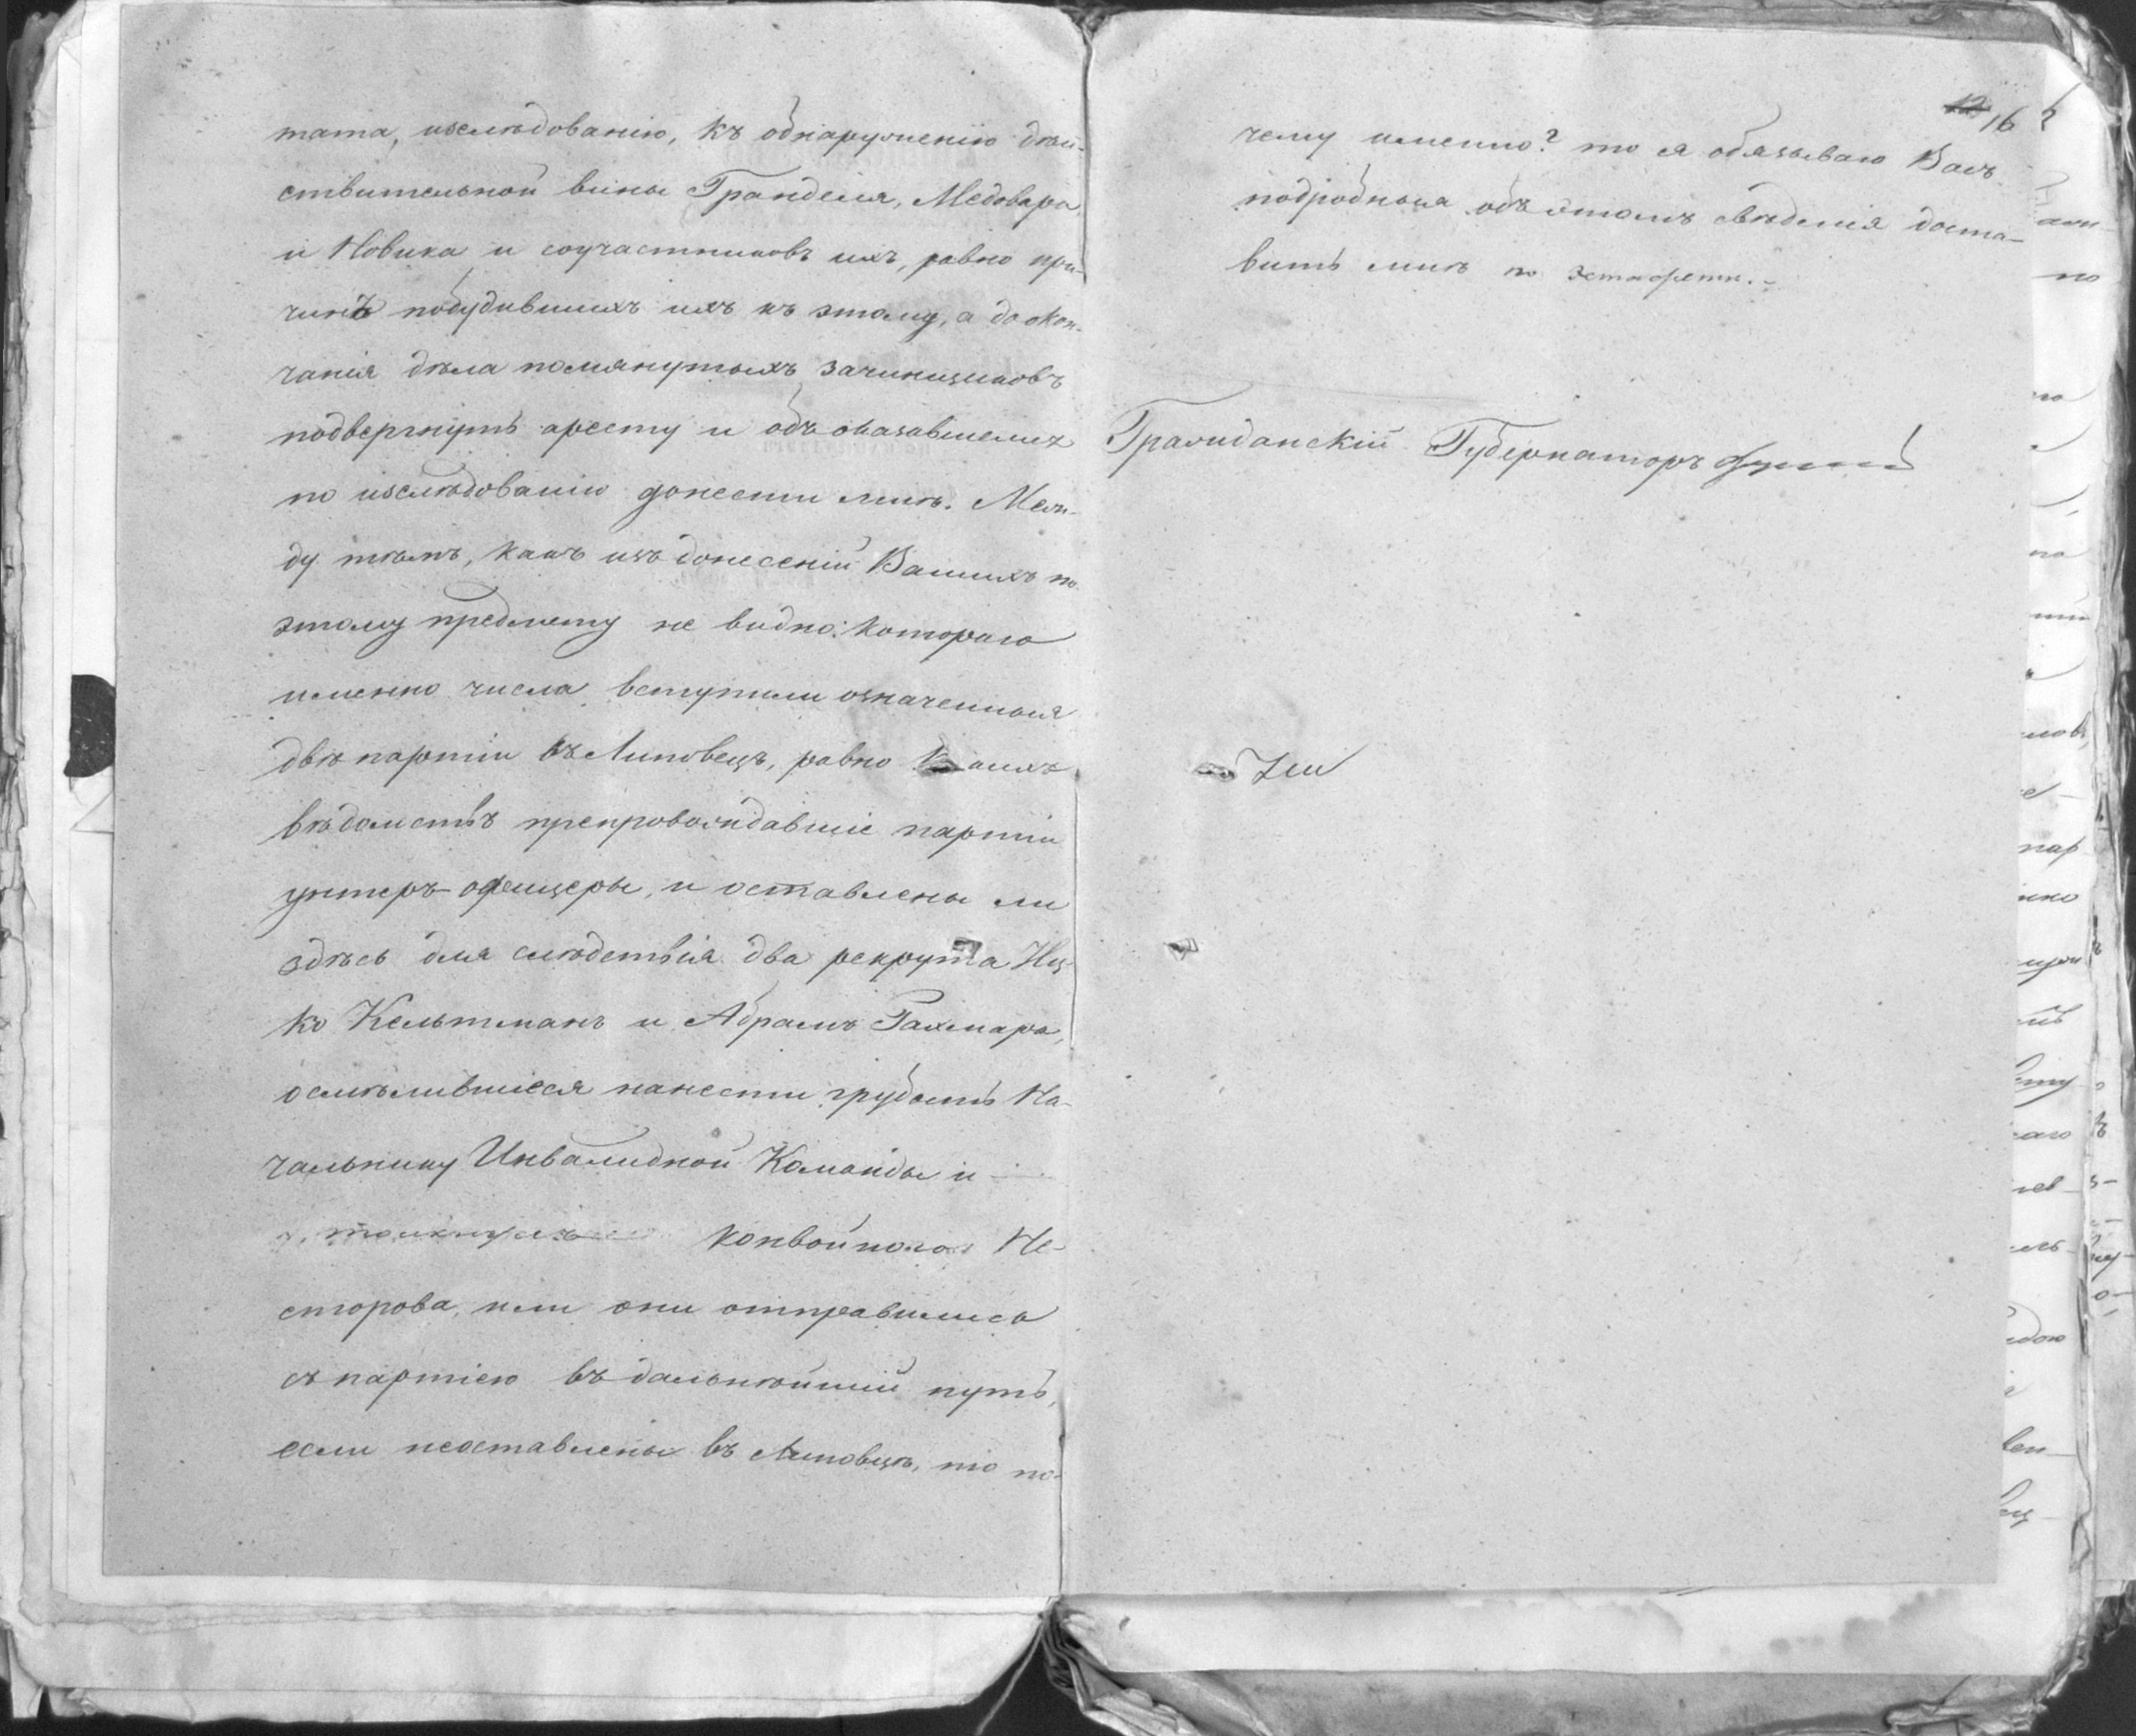 тата, изслѣдованію, къ обнаруженію дѣй-
ствительной вины Гранделя, Медовара,
и Новика и соучастниковъ ихъ, равно при-
чинъ побудившихъ ихъ къ этому, а до окон-
чанія дѣла помянутыхъ зачинщиковъ
подвергнуть аресту и объ оказавшемся
по изслѣдованію донести мнѣ. Меж-
ду тѣмъ, какъ изъ донесеній Вашихъ по
этому предмету не видно: котораго
именно числа вступили означенныя
двѣ партіи въ Липовецъ, равно какихъ
вѣдомствъ препровождавшіе партіи
унтеръ-офицеры, и оставлены ли
здѣсь для слѣдствія два рекрута Иц-
ко Кельтманъ и Абрамъ
осмѣлившіеся нанести грубость На-
чальнику Инвалидной Команды и
конвойнаго Не-
сторова, или они отправились
съ партіею въ дальнѣйшій путь,
если неоставлены въ Липовцѣ, то по-
12 16
чему именно? то я обязываю Васъ
подробныя объ этомъ свѣденія доста-
вить мнѣ по эстафетѣ.
Гражданскій Губернаторъ